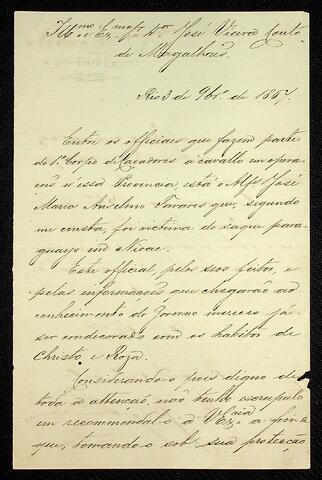 Illmo e Exmo Sr Dor José Vieira Couto
de Magalhães.
Rio 3 de 9bro de 1867.
Entre os officiaes que fazem parte
do 1o Corpo de Caçadores a cavallo em opera
ções n'essa Provincia, está o Alfs José
Maria Anselmo Tavares que, segundo
me consta, foi victima do saque para-
guayo em Nioac.
Este official, pelos seos feitos, e
pelas informações que chegarão ao
conhecimento do Governo mereceo já
ser condecorado com os habitos de
Christo e Roza.
Considerando-o pois digno de
toda a attenção, não tenho escrupulo
em recommendal-o a V Excia a fim de
que, tomando-o sob sua protecção